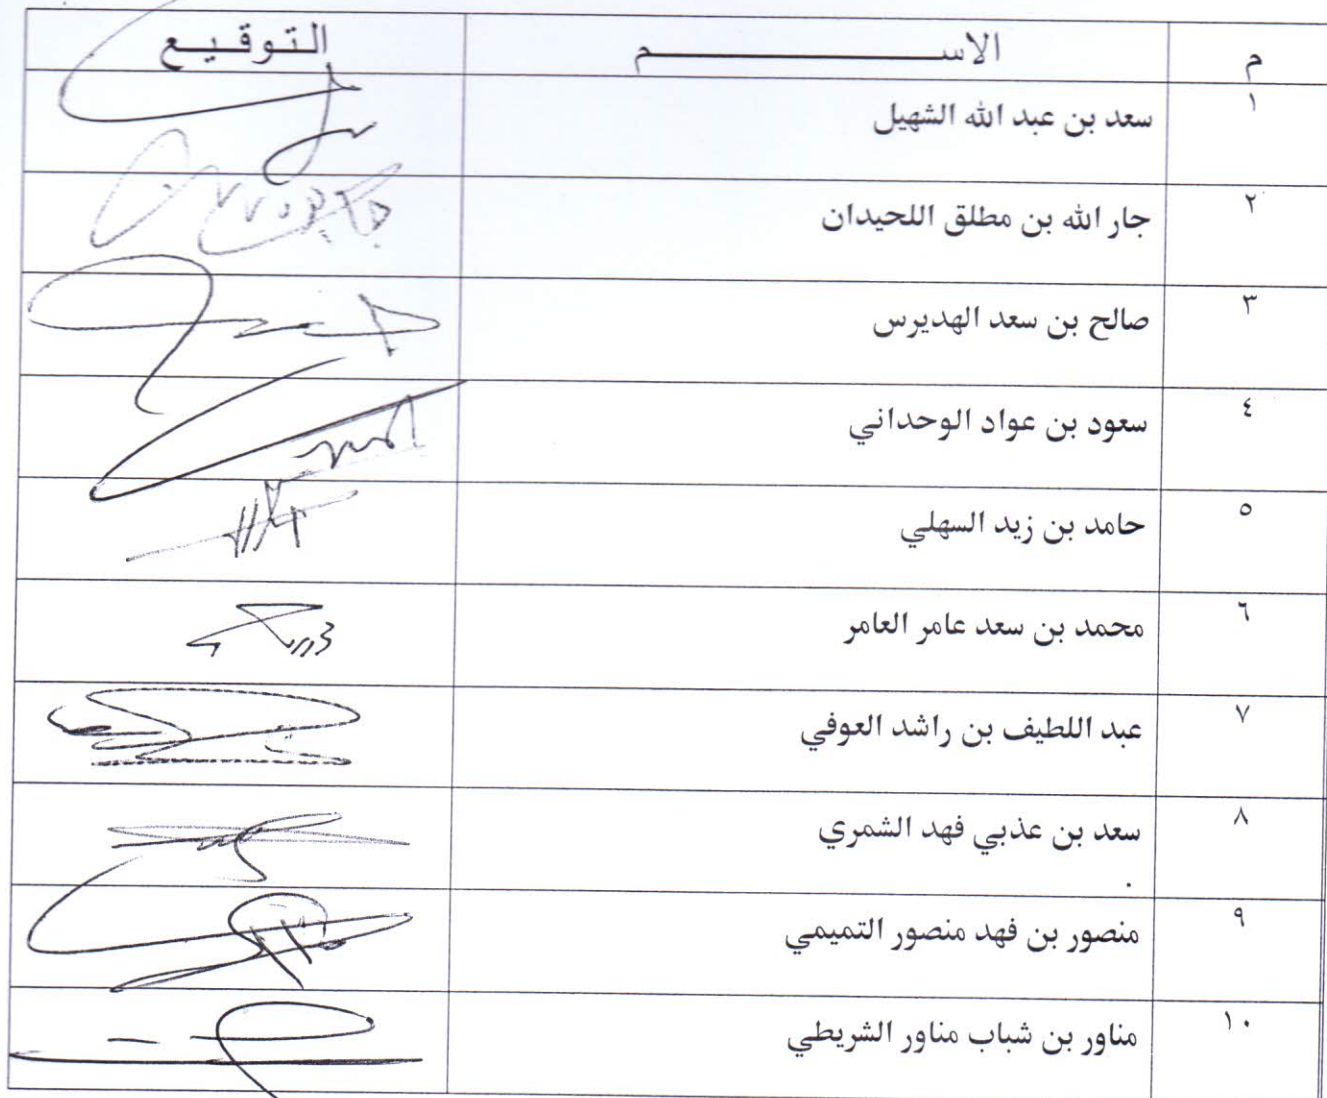 م الاســـــــــم التوقيـع
١ سعد بن عبد الله الشهيل
٢ جار الله بن مطلق اللحيدان
٣ صالح بن سعد الهديرس
٤ سعود بن عواد الوحداني
٥ حامد بن زيد السهلي
٦ محمد بن سعد عامر العامر
٧ عبد اللطيف بن راشد العوفي
٨ سعد بن عذبي فهد الشمري
٩ منصور بن فهد منصور التميمي
١٠ مناور بن شباب مناور الشريطي